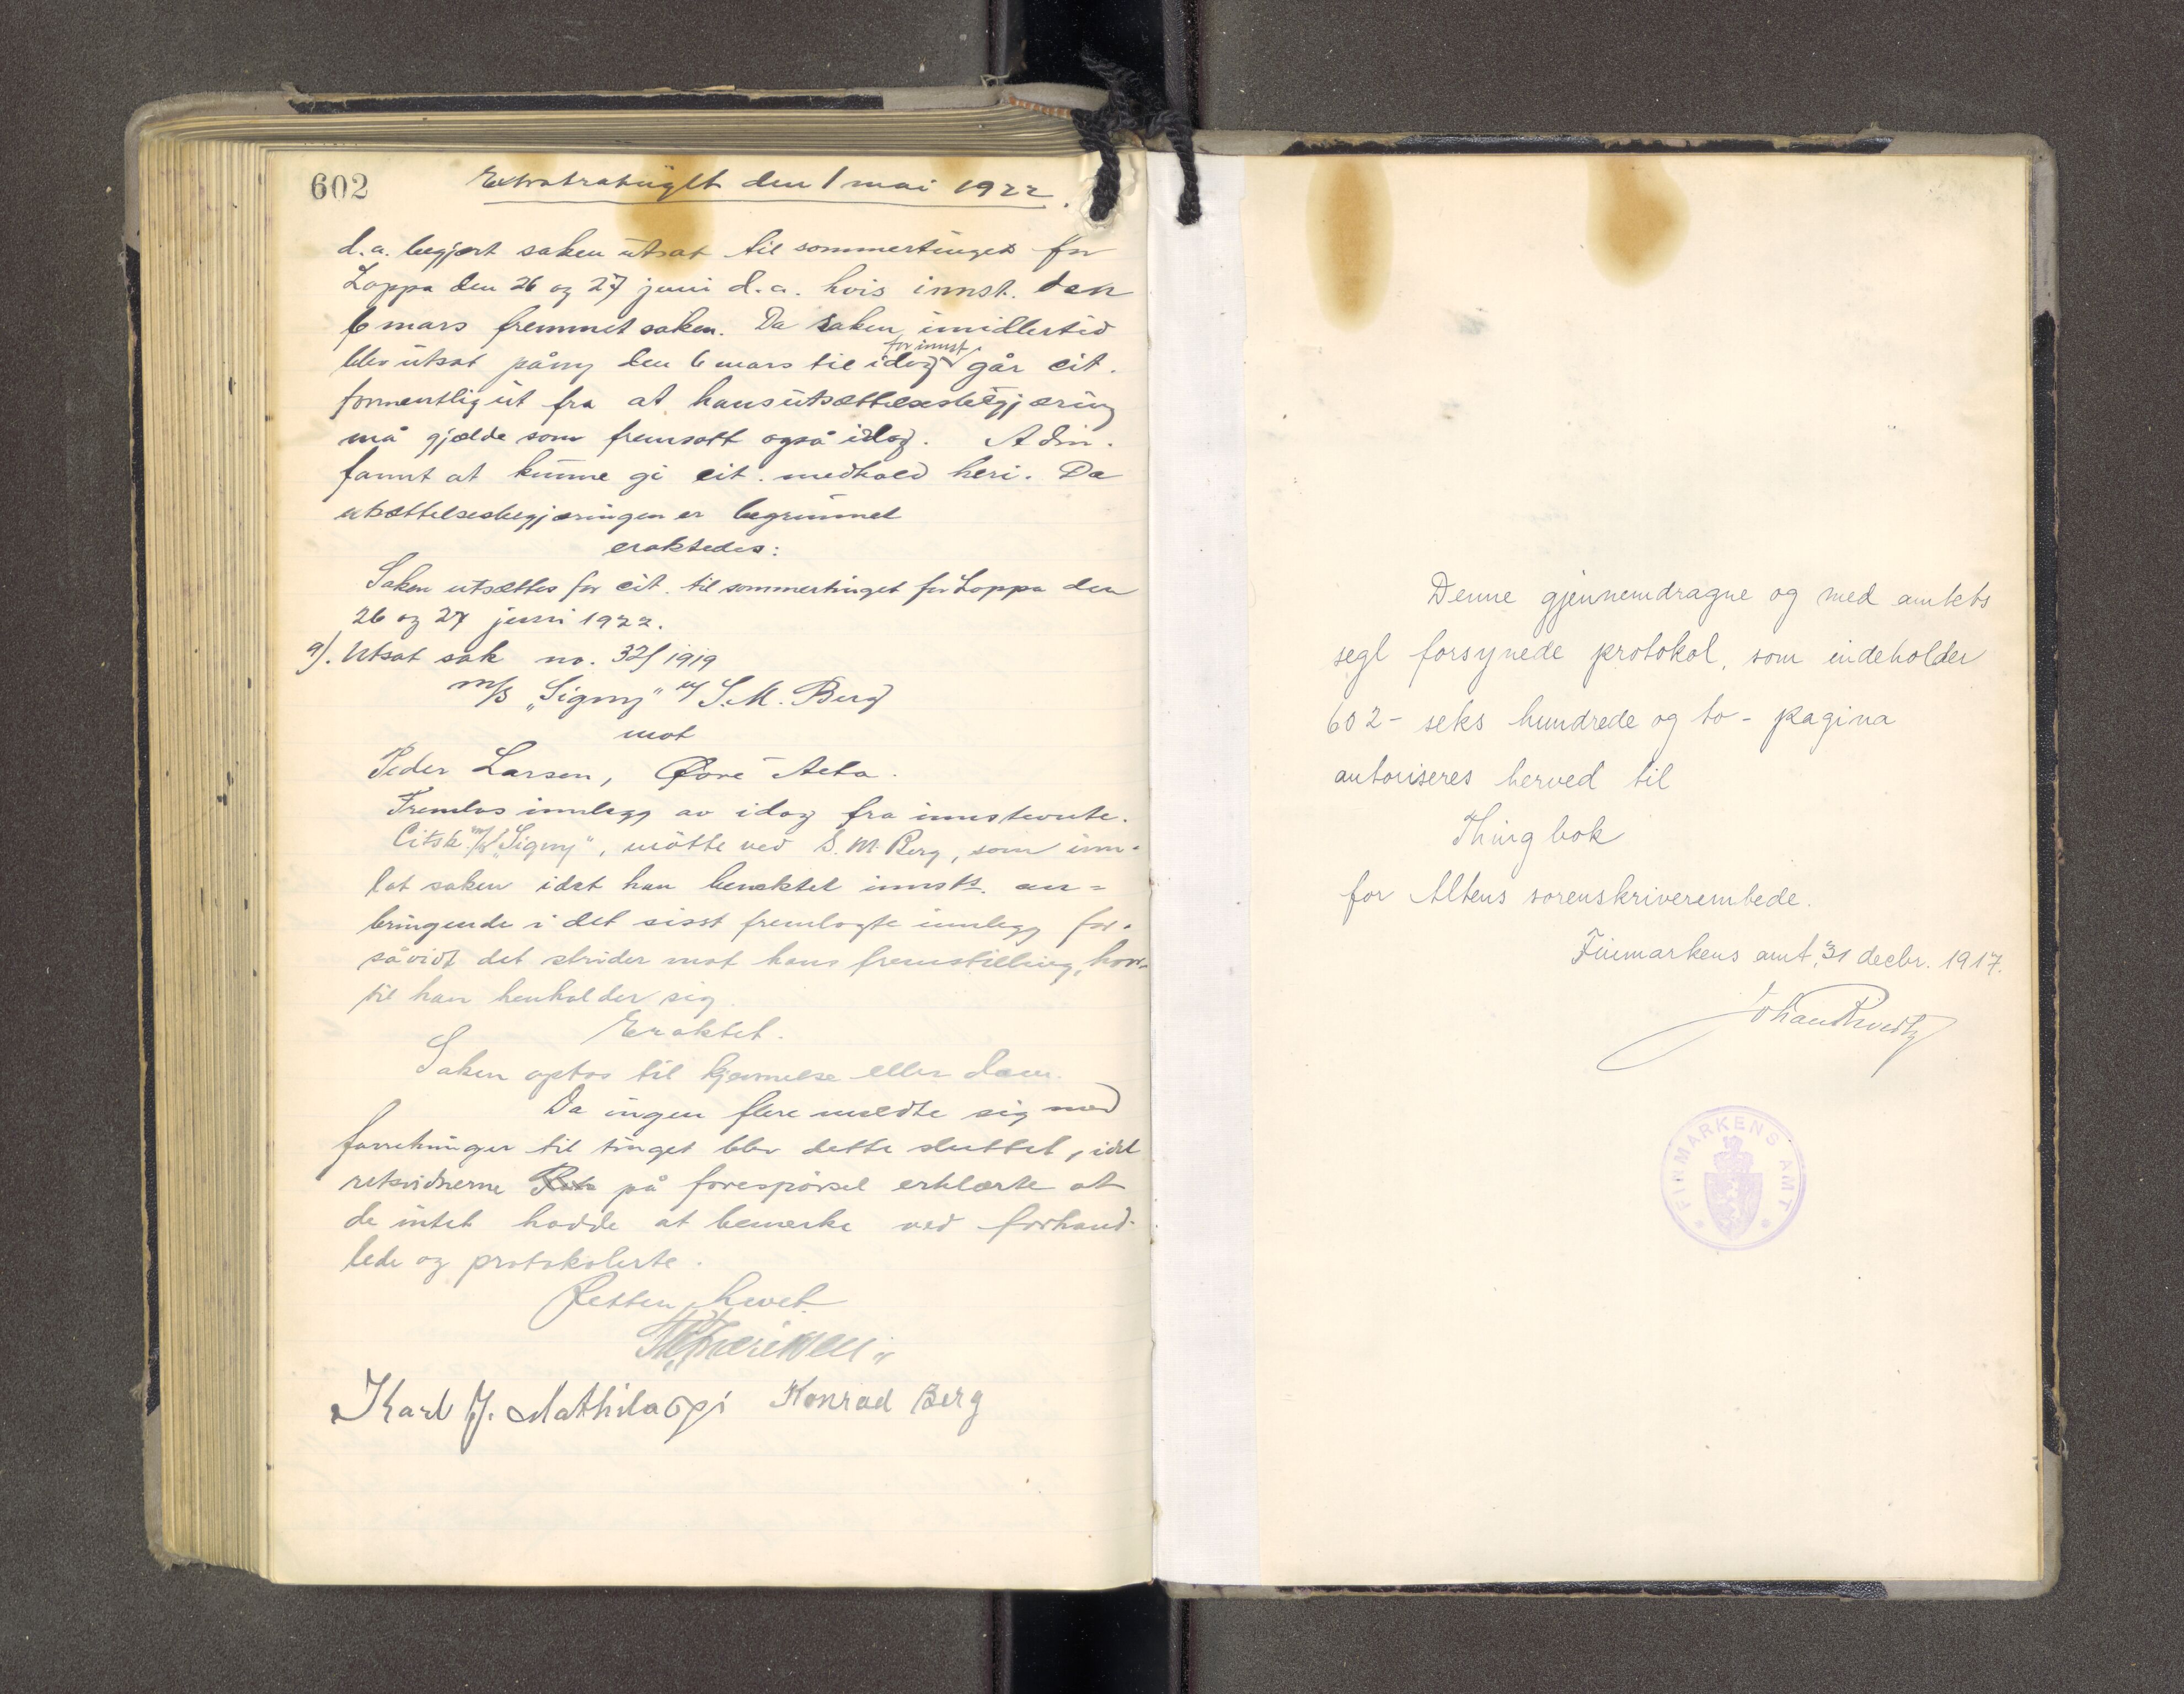 602
den 1 mai 1922.
d.a. begjært saken utsat til sommertinget for
Loppa den 26 og 27 juni d.a. hvis innst. den
6 mars fremmet saken. Da saken imidlertid
for innst.
blev utsat påny den 6 mars til idag går cit.
formentlig ut fra at hans utsættelsesbegjæring
må gjælde som fremsatt også idag. Adm.
fannt at kunne gi cit. medhold heri. Da
utsættelsesbegjæringen er begrunnet
eraktedes:
Saken utsættes for cit. til sommertinget for Loppa den
26 og 27 juni 1922.
9). Utsat sak no. 32/1919
m/s "Signy" v/ S. M. Berg
mot
Peder Larsen, Øvre Alta.
Fremlas innlegg av idag fra innstevnte.
Citst. m/s "Signy", møtte ved S. M. Berg, som inn-
lot saken idet han benektet innsts. an-
bringende i det sisst fremlagte innlegg for-
såvidt det strider mot hans fremstilling, hvor-
til han henholder sig.
Eraktet.
Saken optas til kjennelse eller dom.
Da ingen flere meldte sig med
forretninger til tinget blev dette sluttet, idet
retsvidnerne på forespørsel erklærte at
de intet hadde at bemerke ved forhand-
lede og protokolerte.
Retten hevet.
Karl J. Mathilaopi Konrad Berg
Denne gjennemdragne og med amtets
segl forsynede protokol, som indeholder
602 - seks hundrede og to - pagina
autoriseres herved til
Thingbok
for Altens sorenskriverembede.
Finmarkens amt, 31 decbr. 1917.
Johan Rivertz
FINMARKENS AMT